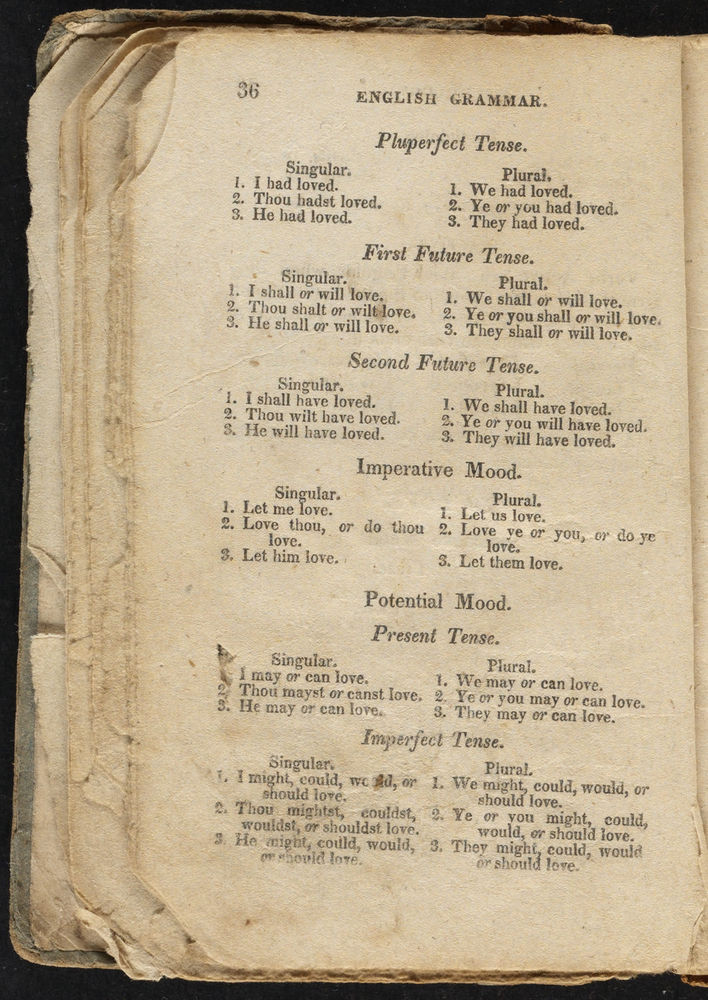 36
ENGLISH GRAMMAR.
Pluperfect Tense.
Singular.
1. I had loved.
2. Thou hadst loved.
3. He had loved.
Plural.
1. We had loved.
2. Ye or you had loved.
3. They had loved.
First Future Tense.
Singular.
1. I shall or will love.
2. Thou shalt or wilt love.
3. He shall or will love.
Plural.
1. We shall or will love.
2. Ye or you shall or will love.
3. They shall or will love.
Second Future Tense.
Singular.
1. I shall have loved.
2. Thou wilt have loved.
3. He will have loved.
Plural.
1. We shall have loved.
2. Ye or you will have loved.
3. They will have loved.
Imperative Mood.
Singular.
1. Let me love.
2. Love thou, or do thou
love.
3. Let him love.
Plural.
1. Let us love.
2. Love ye or you, or do ye
love.
3. Let them love.
Potential Mood.
Present Tense.
Singular.
I may or can love.
2. Thou mayst or canst love.
3. He may or can love.
Plural.
1. We may or can love.
2. Ye or you may or can love.
3. They may or can love.
Imperfect Tense.
Singular.
1. I might, could, would, or
should love.
2. Thou mightst, couldst,
wouldst, or shouldst love.
3. He might, could, would,
or should love.
Plural.
1. We might, could, would, or
should love.
2. Ye or you might, could,
would, or should love.
3. They might, could, would
or should love.